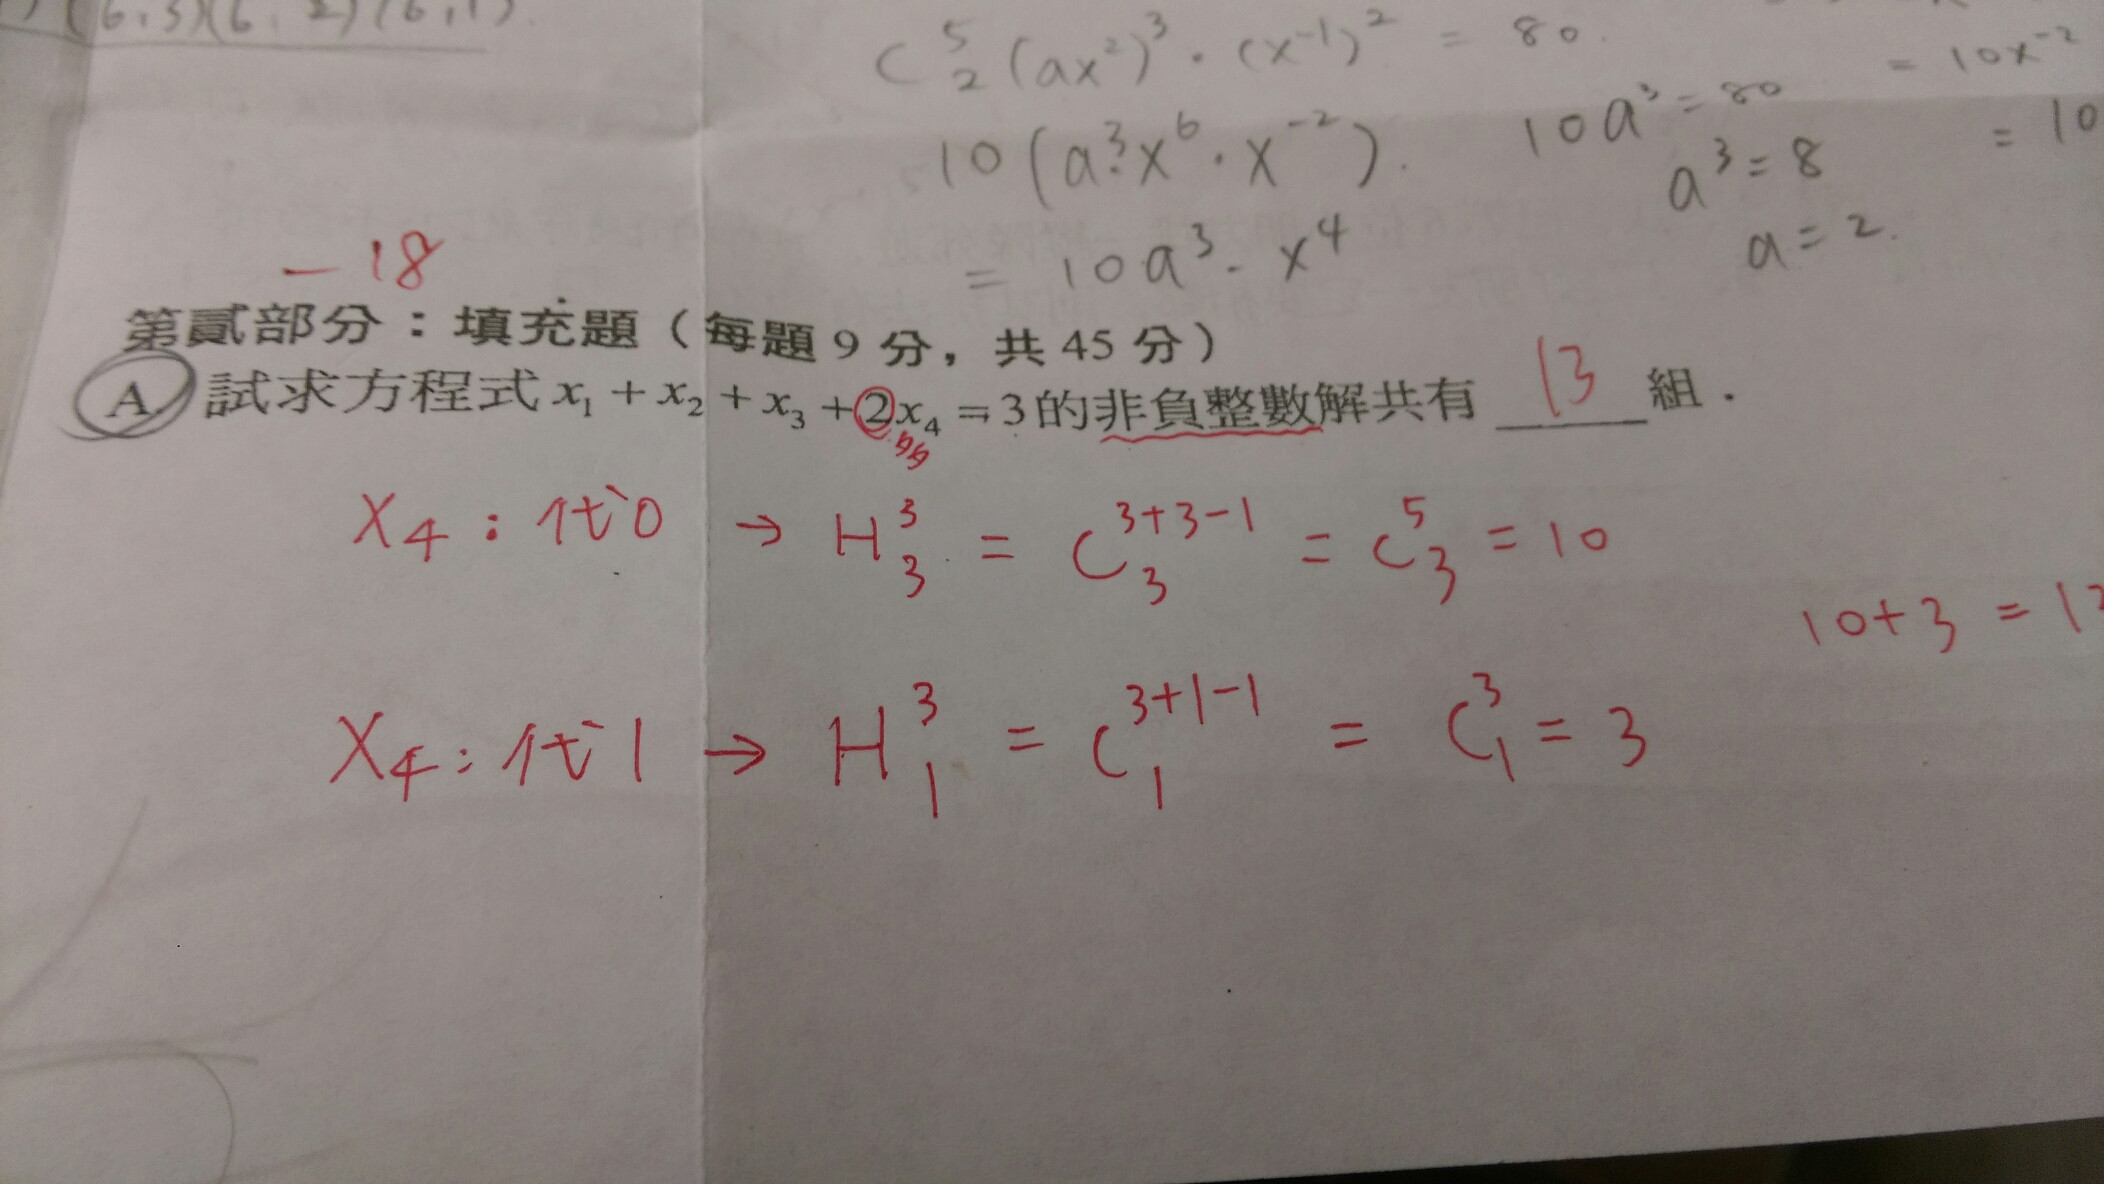 (6,3)(6,2)(6,1).
C⁵₂(ax²)³·(x⁻¹)² = 80.
= 10x⁻²
10(a³x⁶·x⁻²).
10a³=80
= 10
a³=8
= 10a³·x⁴
a=2.
-18
第貳部分：填充題（每題 9 分，共 45 分）
A. 試求方程式 x₁ + x₂ + x₃ + 2x₄ = 3 的非負整數解共有 13 組．
X₄：代0 → H³₃ = C³⁺³⁻¹₃ = C⁵₃ = 10
10+3 = 13
X₄：代1 → H³₁ = C³⁺¹⁻¹₁ = C³₁ = 3